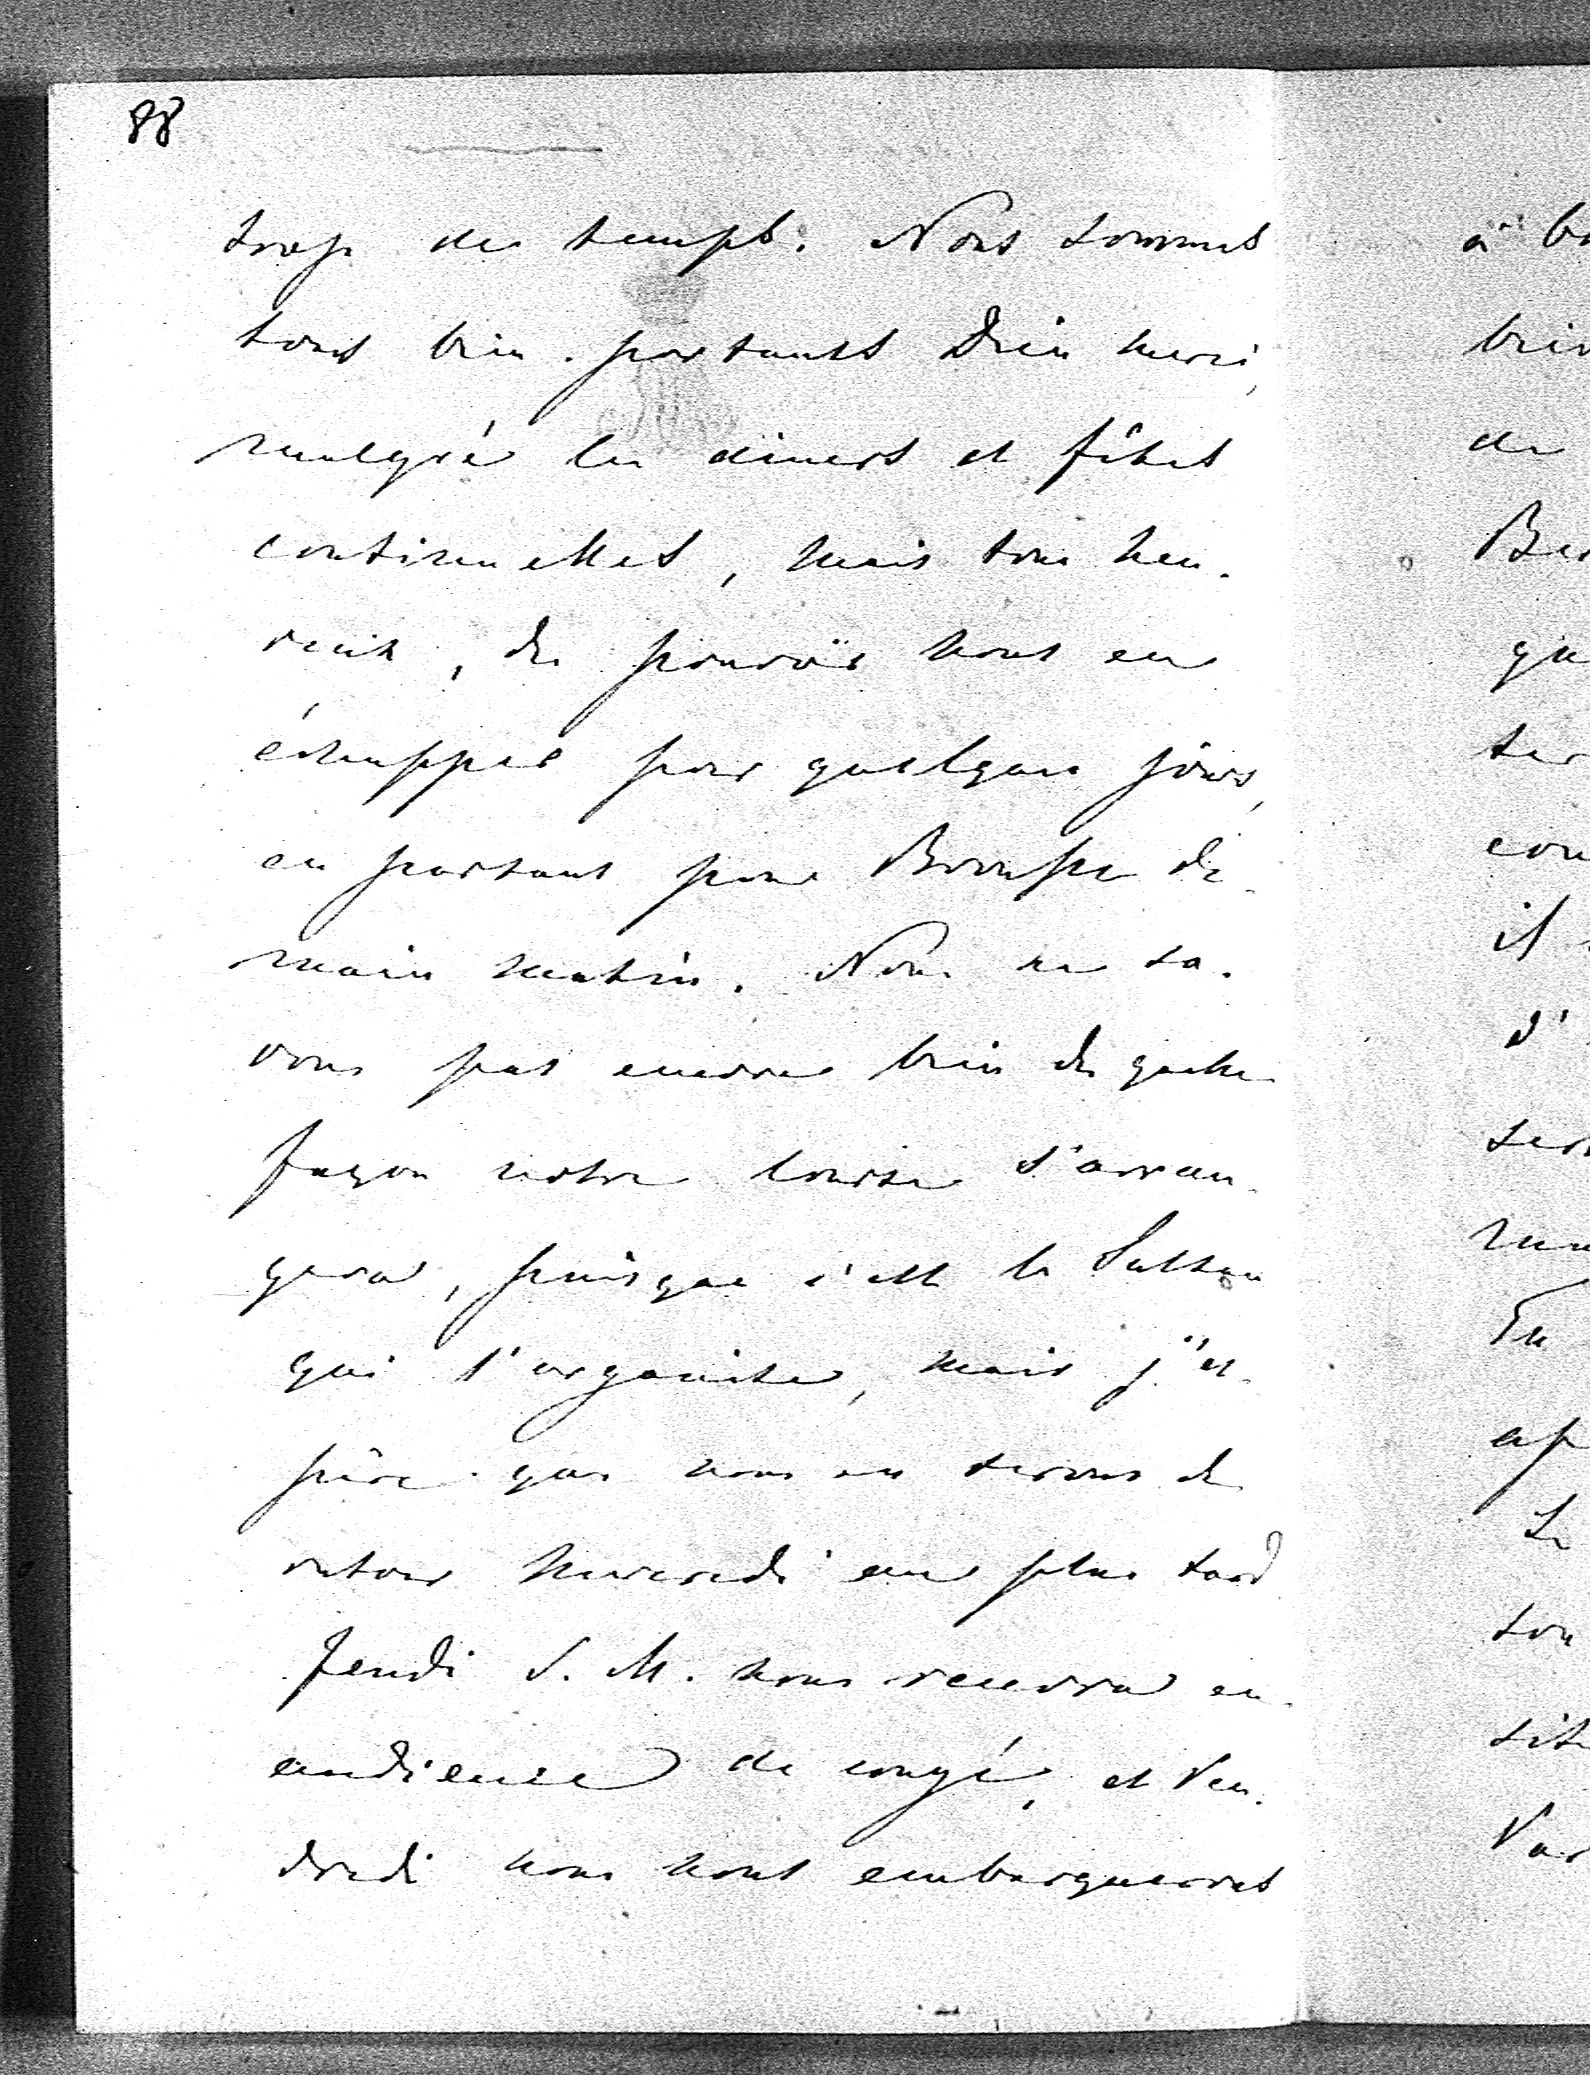 88
trop de temps. Nous sommes
tous bien portants Dieu merci,
malgré les diners et fêtes
continuelles, mais tous heu-
reux, de pouvoir nous en
échapper pour quelques jours,
en partant pour Brousse de-
main matin. Nous ne sa-
vons pas encore bien de quelle
façon notre course s'arran-
gera, puisque c'est le Sultan
qui l'organise, mais j'es-
père que nous en serons de
retour Mercredi au plus tard
Jeudi S. M. nous recevra en
audience de congé, et Ven-
dredi nous nous embarquerons
à
de
il
d'
En